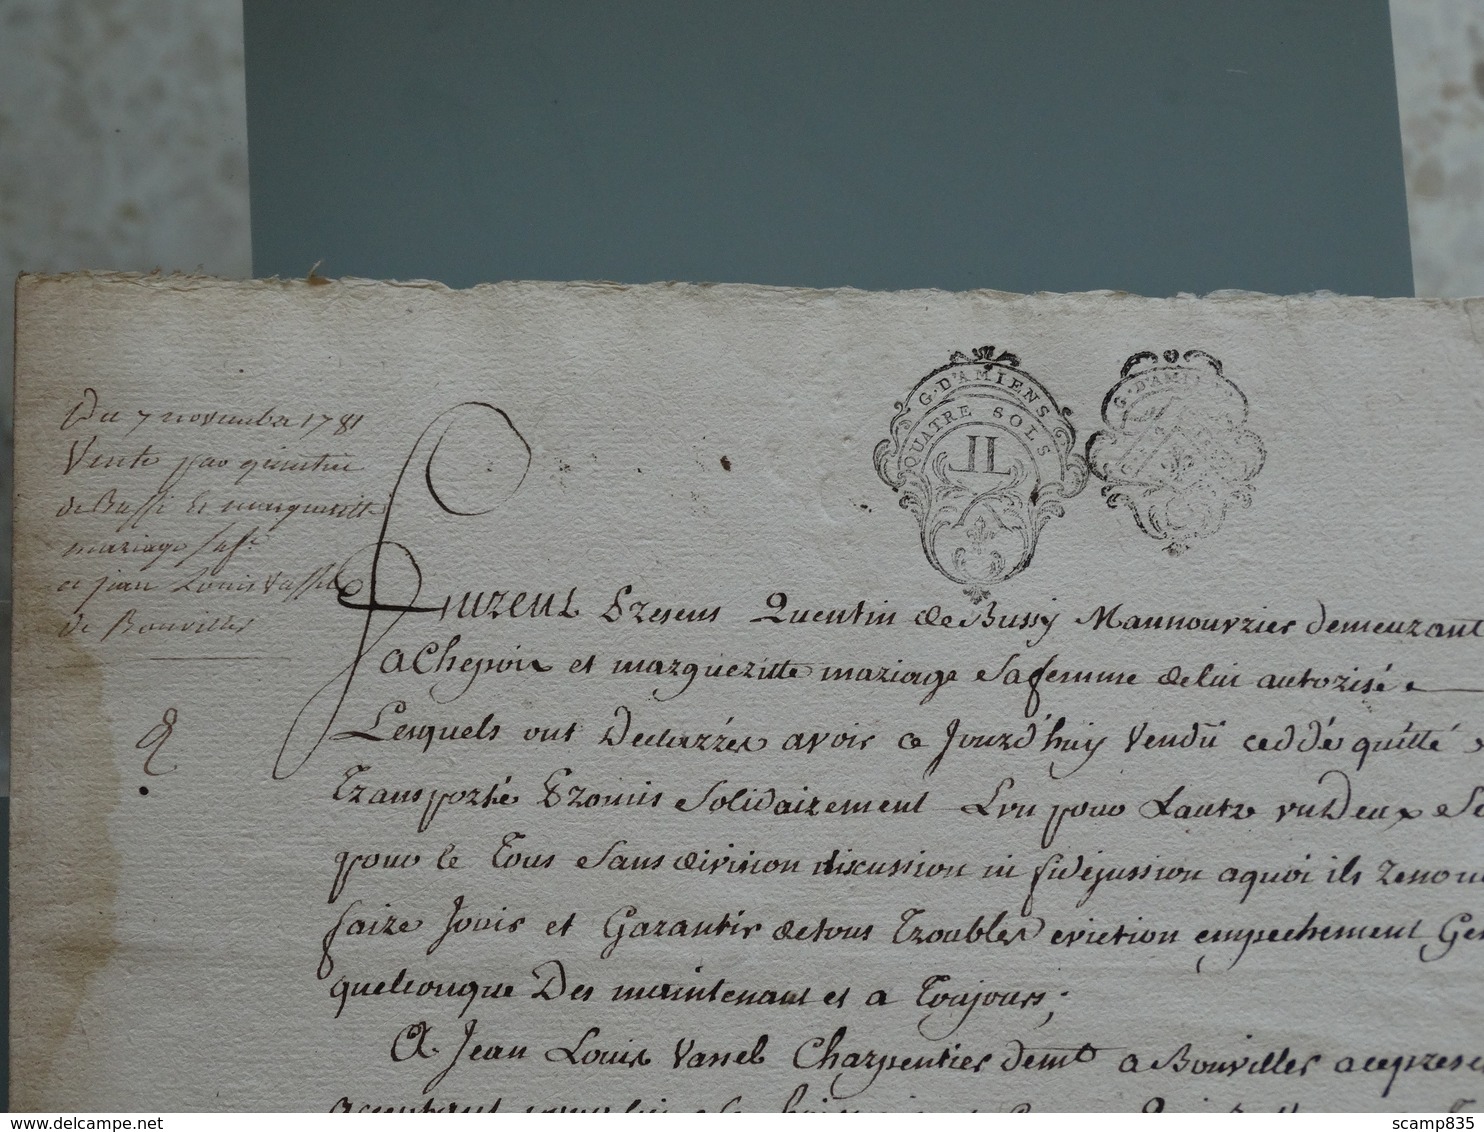 G. D'AMIENS
QUATRE SOLS
G. D'AMI
Du 7 novembre 1781
Vente par quintin
de Bussi et margueritte
mariage sa fe
a jean Louis Vassel
de Bonviller
furent Presens Quentin de Bussy Mannouvrier demeurant
a Chepoix et margueritte mariage sa femme de lui autorisé
Lesquels ont Declarrés avoir ce Jourd'huy Vendu ceddé quitté
Transporté Promis Solidairement L'un pour Lautre un Deux Se
pour le Tous Sans division discussion ni fidéjussion aquoi ils renon
faire Jouir et Garantir de tous Troubles eviction empechement Ge
quelconque Des maintenant et a Toujours;
A Jean Louis Vassel Charpentier demt a Bonviller a ce prese
acceptant pour lui
www.delcampe.net
scamp835